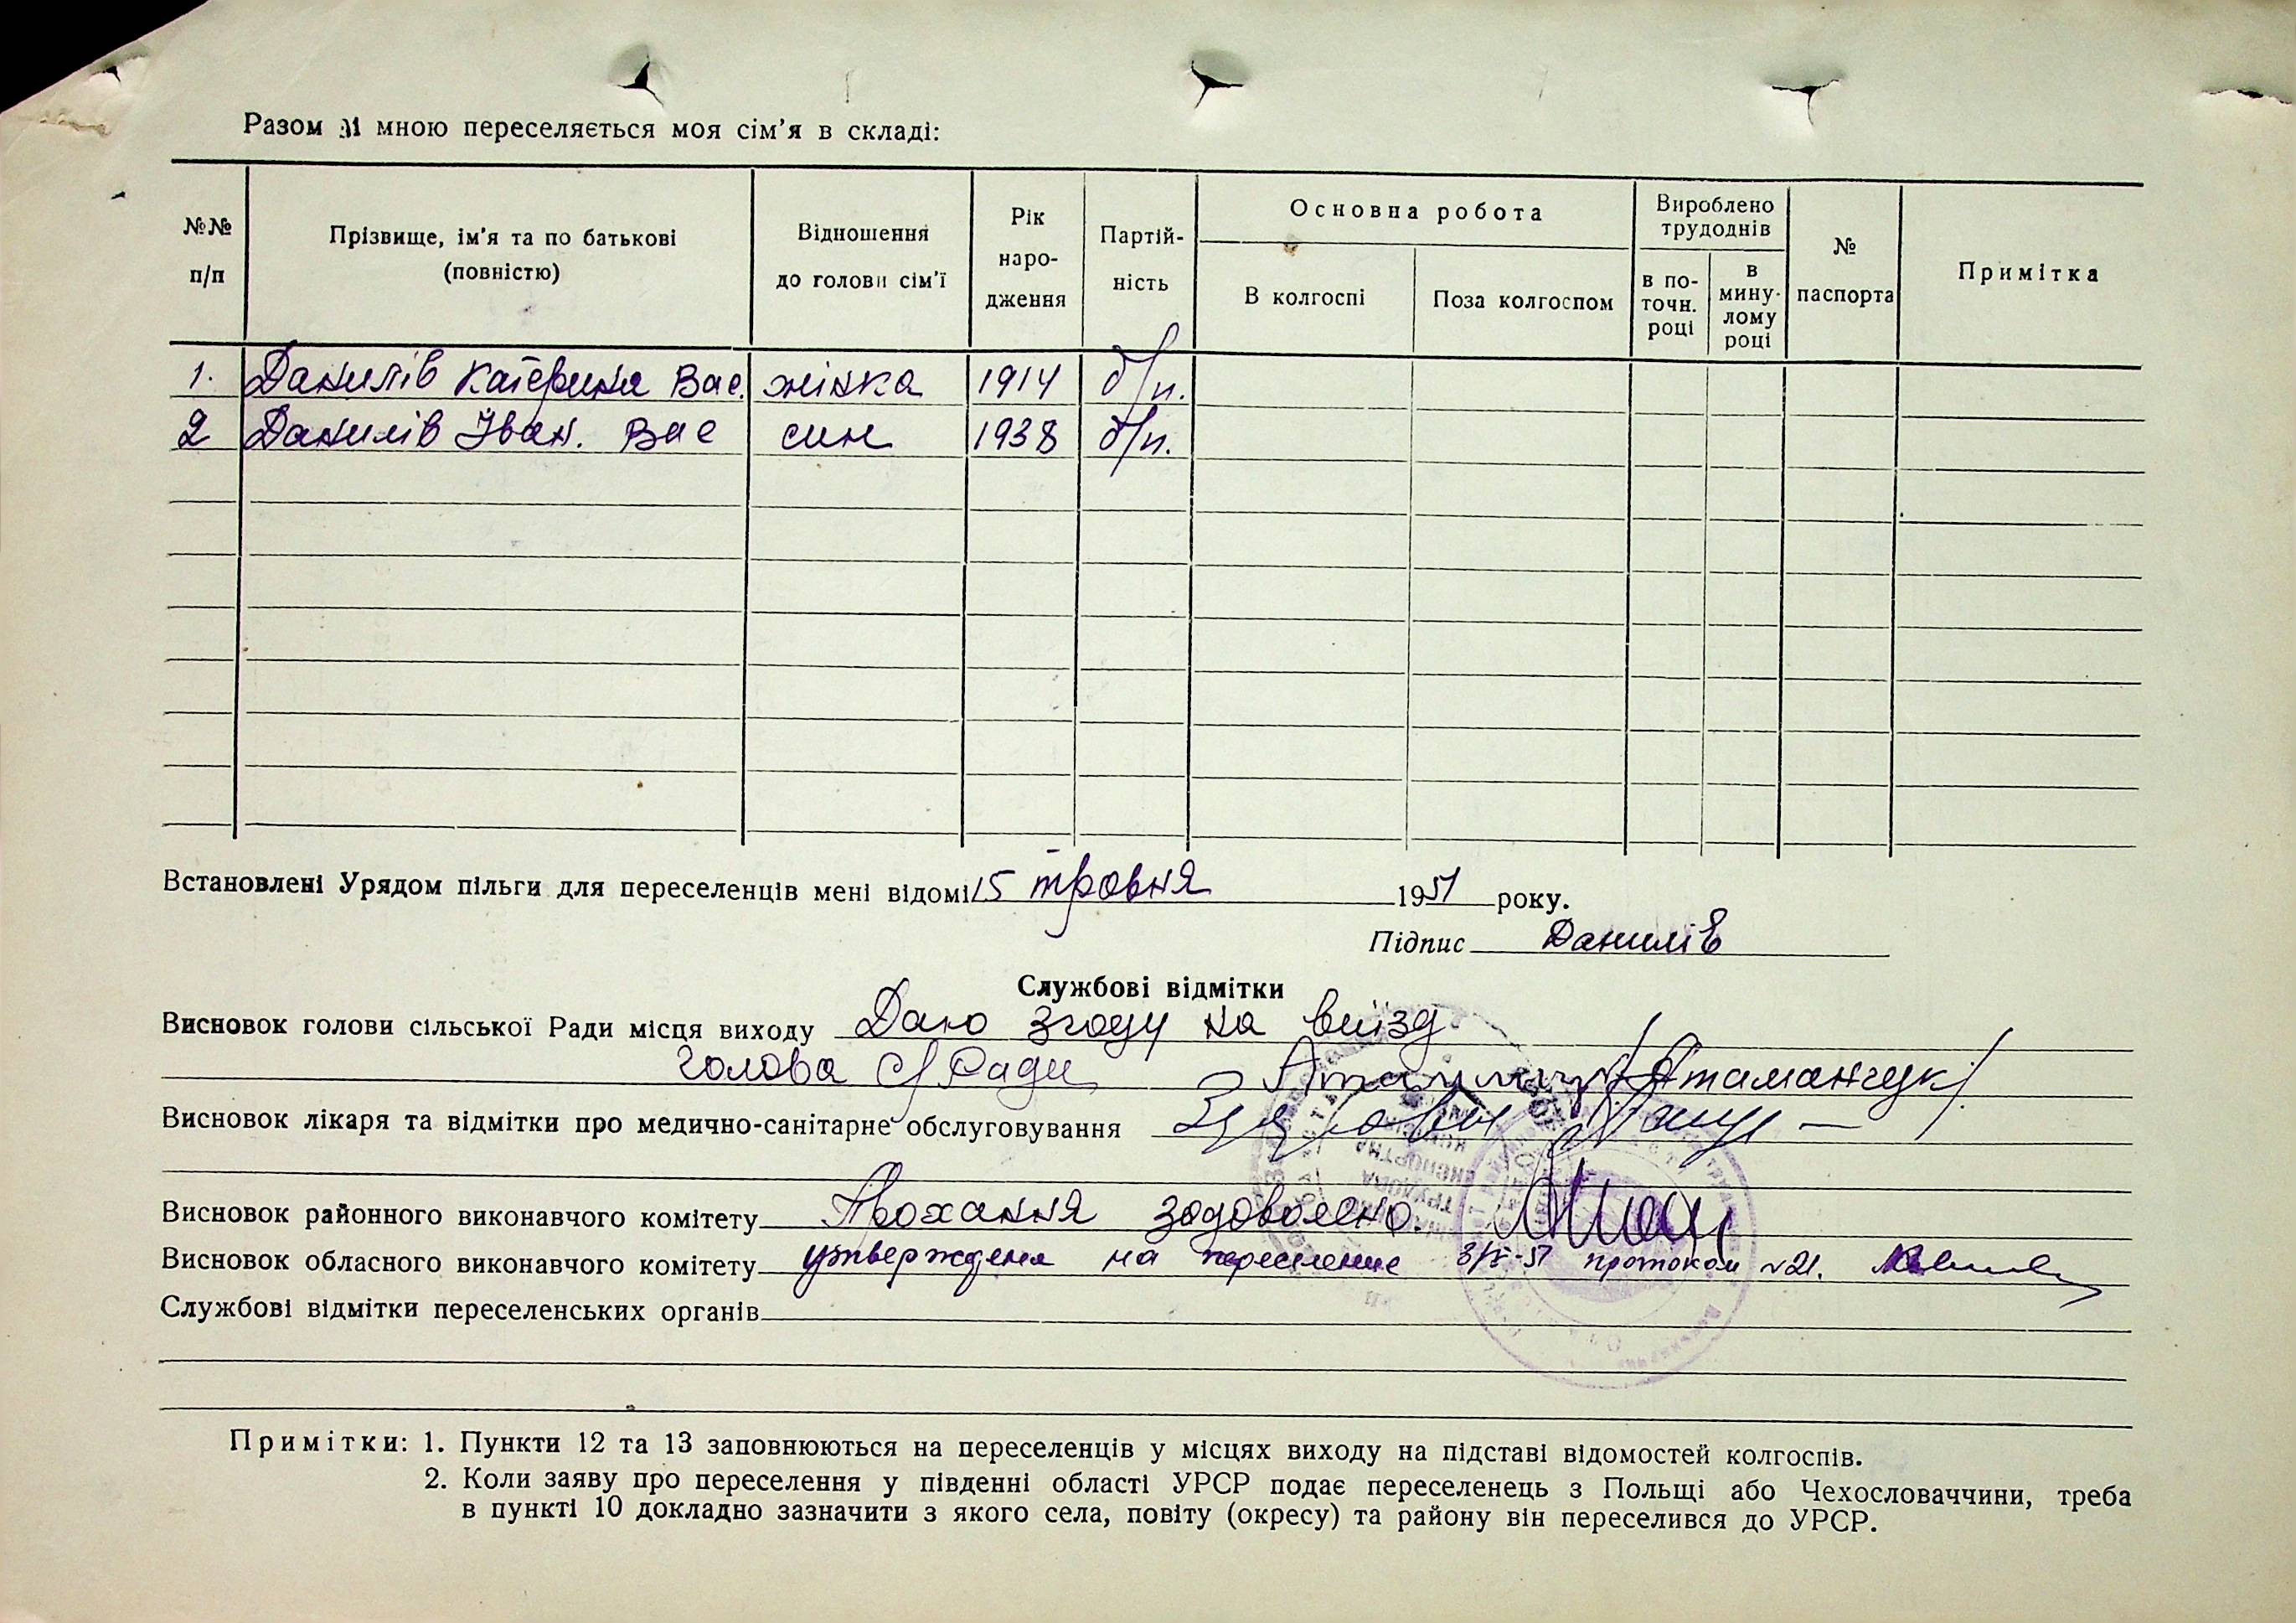 Разом зі мною переселяється моя сім'я в складі:
№№ п/п | Прізвище, ім'я та по батькові (повністю) | Відношення до голови сім'ї | Рік народження | Партійність | Основна робота | Вироблено трудоднів | № паспорта | Примітка
В колгоспі | Поза колгоспом | в поточн. році | в минулому році
1. Данилів Катерина Вас. жінка 1914 б/п.
2 Данилів Іван. Вас син 1938 б/п.
Встановлені Урядом пільги для переселенців мені відомі 15 травня 1951 року.
Підпис Данилів
Службові відмітки
Висновок голови сільської Ради місця виходу Даю згоду на виїзд.
Голова с/Ради /Атаманчук/.
Висновок лікаря та відмітки про медично-санітарне обслуговування
Висновок районного виконавчого комітету Прохання задоволено.
Висновок обласного виконавчого комітету утверждена на переселение протокол №21.
Службові відмітки переселенських органів
Примітки: 1. Пункти 12 та 13 заповнюються на переселенців у місцях виходу на підставі відомостей колгоспів.
2. Коли заяву про переселення у південні області УРСР подає переселенець з Польщі або Чехословаччини, треба
в пункті 10 докладно зазначити з якого села, повіту (окресу) та району він переселився до УРСР.